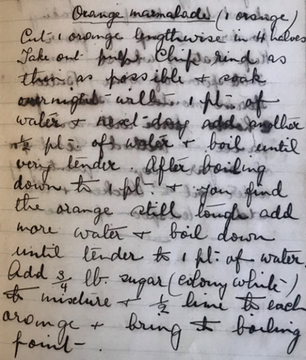 Orange marmalade (1 orange)
Cut 1 orange lengthwise in 4 halves
Take out pulp. Chip rind as
thin as possible & soak
overnight with 1 pt. of
water & next day add another
½ pt. of water & boil until
very tender. After boiling
down to 1 pt. & you find
the orange still tough add
more water & boil down
until tender to 1 pt. of water.
Add ¾ lb. sugar (colony white)
to mixture & ½ lime to each
orange & bring to boiling
point.